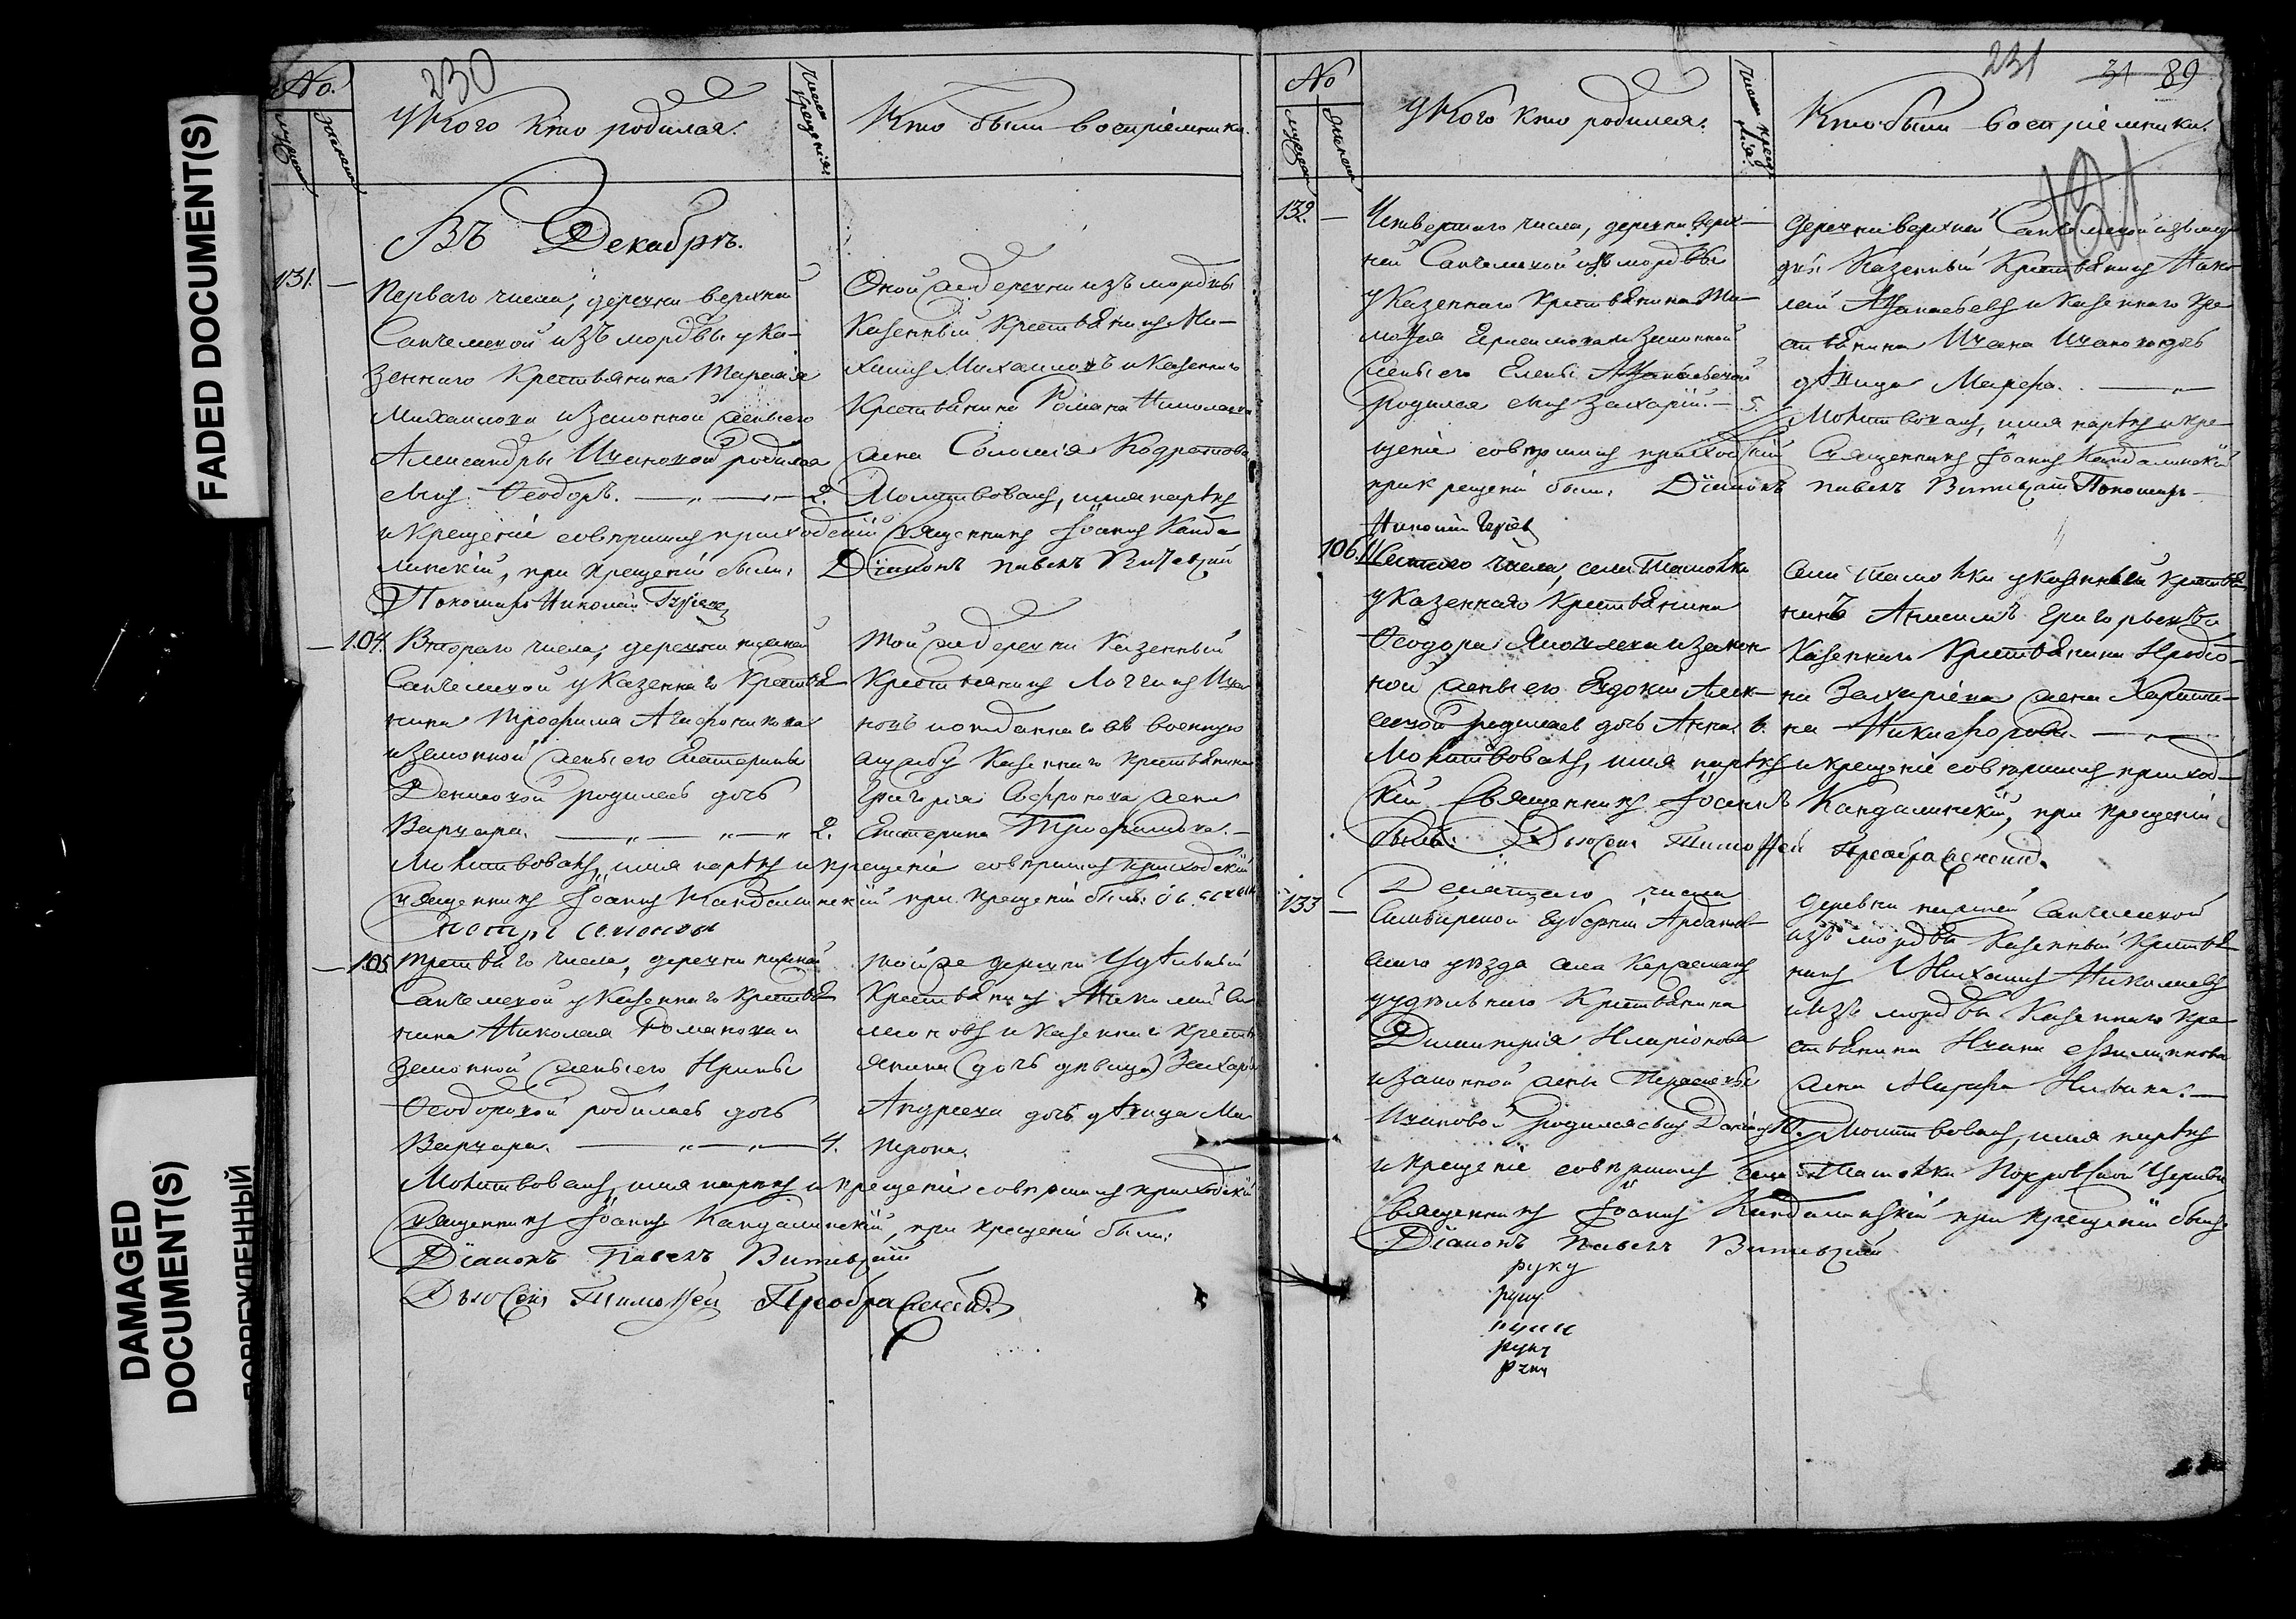 FADED DOCUMENT(S)
DAMAGED
DOCUMENT(S)
ПОВРЕЖДЕННЫЙ
230
No.
У Кого Кто родился.
Число крещенія
Кто были воспріемники.
Въ Декабрѣ.
131. —
Перваго числа, деревни верхней
Санчелеевой изъ мордвы у Ка-
зеннаго Крестьянина Тарасія
Михаилова и законной жены его
Александры Ивановой родился
сынъ Ѳеодоръ. — 2.
Оной же деревни изъ мордвы
Казенный Крестьянинъ Ми-
хаилъ Михаиловъ и Казеннаго
Крестьянина Романа Николаева
жена Соломія Кодратова
Молитвовалъ, имя нарекъ
и Крещеніе совершилъ приходскій Священникъ Іоаннъ Канда-
линскій, при Крещеніи были: Діаконъ Павелъ
Пономарь Николай
— 104.
Втораго числа, деревни нижней
Санчелеевой у Казеннаго Крестья
нина Трофима Агафонникова
и законной жены его Екатерины
Денисовой родилась дочь
Варвара. — 2.
Той же деревни Казенный
Крестьянинъ Логгинъ Ива
новъ и отданнаго въ военную
службу Казеннаго Крестьянина
Григорія Софронова жена
Екатерина Трофимова. —
Молитвовалъ, имя нарекъ и крещеніе совершилъ приходскій
священникъ Іоаннъ Кандалинскій при крещеніи былъ:
— 105
Третьяго числа, деревни нижней
Санчелеевой у Казеннаго Крестья
нина Николая Романова и
законной жены его Ирины
Ѳеодоровой родилась дочь
Варвара. — 4.
той же деревни Удѣльный
Крестьянинъ Николай Си
меоновъ и Казеннаго Кресть
янина (дочь дѣвица) Захарія
Андреева дочь дѣвица Ма
трона.
Молитвовалъ, имя нарекъ и крещеніе совершилъ приходскій
священникъ Іоаннъ Кандалинскій, при крещеніи были:
Діаконъ Павелъ
Дьячекъ Тимоѳей Преображенскій
231 31 89
No
У Кого Кто родился.
Число крещенія.
Кто были воспріемники.
132. —
Четвертаго числа, деревни верх-
ней Санчелеевой изъ мордвы
у Казеннаго Крестьянина Ти-
моѳея Герасимова и законной
жены его Елены Аѳанасьевой
родился сынъ Захарій. — 5.
Деревни верхней Санчелеевой изъ морд
вы Казенный Крестьянинъ Нико
лай Аѳанасьевъ и Казеннаго Кре
стьянина Ивана Иванова дочь
дѣвица Марфа. —
Молитвовалъ, имя нарекъ и кре-
щеніе совершилъ приходскій Священникъ Іоаннъ Кандалинскій
при крещеніи были: Діаконъ Павелъ Пономарь
Николай
106.
Шестаго числа, села Ташолки
у Казеннаго Крестьянина
Ѳеодора Яковлева и закон
ной жены его Евдокіи Алек-
сеевой родилась дочь Анна 6.
Села Ташолки Казенный Крестья
нинъ Анисимъ Григорьевъ и
Казеннаго Крестьянина Иродіо-
на Захаріева жена Харити-
на Никифорова. —
Молитвовалъ, имя нарекъ и крещеніе совершилъ приход-
скій Священникъ Іоаннъ Кандалинскій, при крещеніи
былъ: Дьячекъ Тимоѳей Преображенскій.
133 —
Девятаго числа
Симбирской Губерніи Ардатов
скаго уезда села
удѣльнаго Крестьянина
Димитрія Иларіонова
и законной жены Параскевы
Ивановой родился сынъ Даніилъ 10.
деревни нижней Санчелеевой
изъ мордвы Казенный Крестья
нинъ Михаилъ Николаевъ
и изъ мордвы Казеннаго Кре
стьянина Ивана Филиппова
жена Марфа —
Молитвовалъ, имя нарекъ
и крещеніе совершилъ села Ташолки Покровской Церкви
Священникъ Іоаннъ Кандалинскій при крещеніи былъ
Діаконъ Павелъ
руку